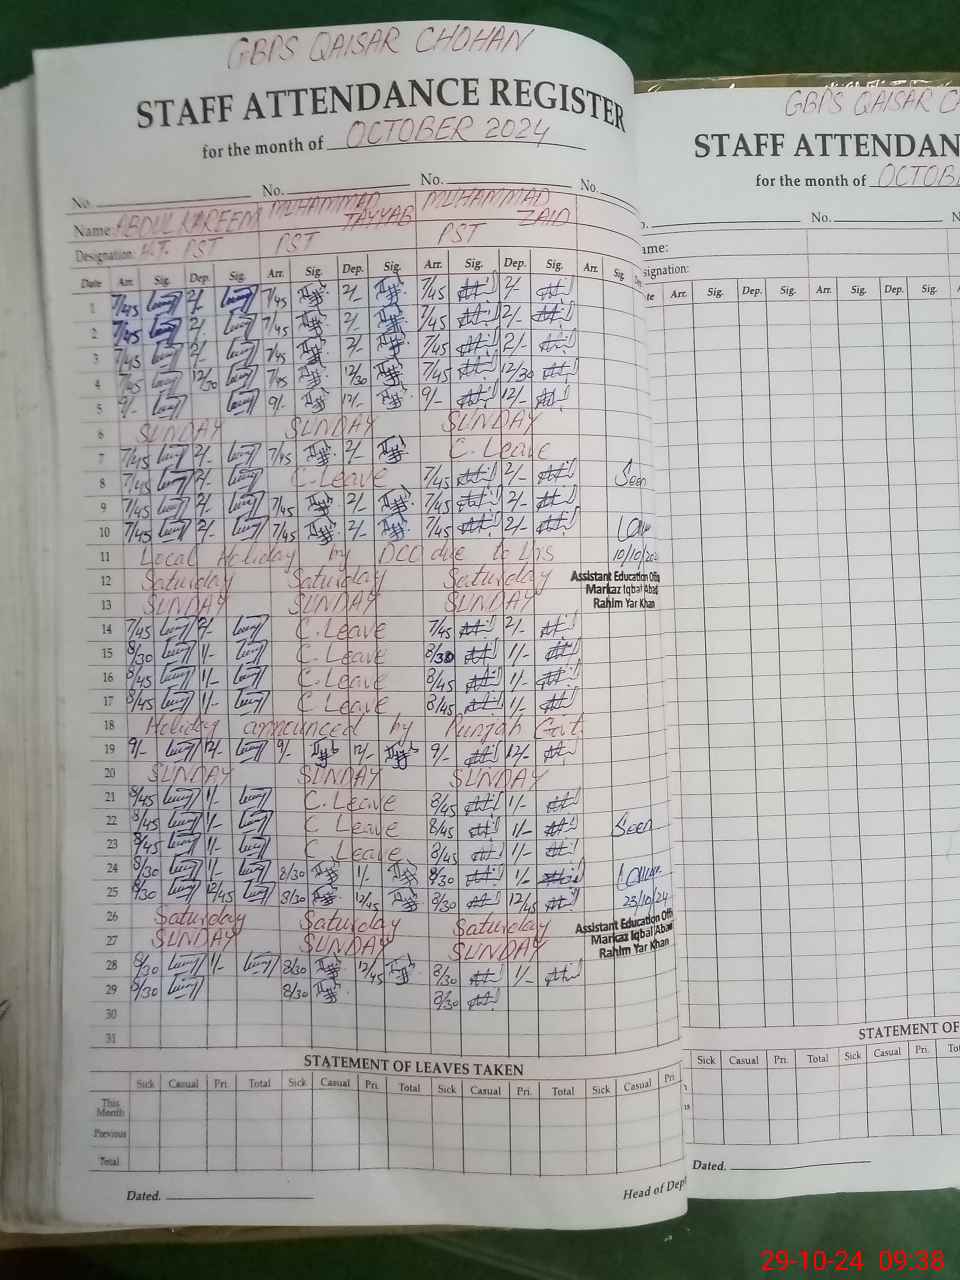 GBPS QAISAR CHOHAN
STAFF ATTENDANCE REGISTER
for the month of OCTOBER 2024
No. No. No. No.
Name: ABDUL KAREEM MUHAMMAD TAYYAB MUHAMMAD ZAID
Designation: H.T. PST PST PST
Date Arr. Sig. Dep. Sig. Arr. Sig. Dep. Sig. Arr. Sig. Dep. Sig. Arr. Sig. Dep.
1 7/45 2/- 7/45 2/- 7/45 2/-
2 7/45 2/- 7/45 2/- 7/45 2/-
3 7/45 2/- 7/45 2/- 7/45 2/-
4 7/45 12/30 7/45 12/30 7/45 12/30
5 9/- 9/- 12/- 9/- 12/-
6 SUNDAY SUNDAY SUNDAY
7 7/45 2/- 7/45 2/- C. Leave
8 7/45 2/- C. Leave 7/45 2/- Seen
9 7/45 2/- 7/45 2/- 7/45 2/-
10 7/45 2/- 7/45 2/- 7/45 2/-
11 Local Holiday by DCO due to Urs 10/10/202
12 Saturday Saturday Saturday Assistant Education Offi
13 SUNDAY SUNDAY SUNDAY Markaz Iqbal Abad
Rahim Yar Khan
14 7/45 2/- C. Leave 7/45 2/-
15 8/30 1/- C. Leave 8/30 1/-
16 8/45 1/- C. Leave 8/45 1/-
17 8/45 1/- C. Leave 8/45 1/-
18 Holiday announced by Punjab Govt.
19 9/- 12/- 9/- 12/- 9/- 12/-
20 SUNDAY SUNDAY SUNDAY
21 8/45 1/- C. Leave 8/45 1/-
22 8/45 1/- C Leave 8/45 1/- Seen
23 8/45 1/- C. Leave 8/45 1/-
24 8/30 1/- 8/30 1/- 8/30 1/-
25 8/30 12/45 8/30 12/45 8/30 12/45 23/10/24
26 Saturday Saturday Saturday Assistant Education Offi
27 SUNDAY SUNDAY SUNDAY Markaz Iqbal Abad
Rahim Yar Khan
28 8/30 1/- 8/30 12/45 8/30 1/-
29 8/30 8/30 8/30
30
31
STATEMENT OF LEAVES TAKEN
Sick Casual Pri. Total Sick Casual Pri. Total Sick Casual Pri. Total Sick Casual Pri
This Month
Previous
Total
Dated.
Head of Dep
GBPS QAISAR C
STAFF ATTENDAN
for the month of OCTOB
No.
ame:
signation:
te Arr. Sig. Dep. Sig. Arr. Sig. Dep. Sig.
STATEMENT OF
Sick Casual Pri. Total Sick Casual Pri. To
Dated.
29-10-24 09:38